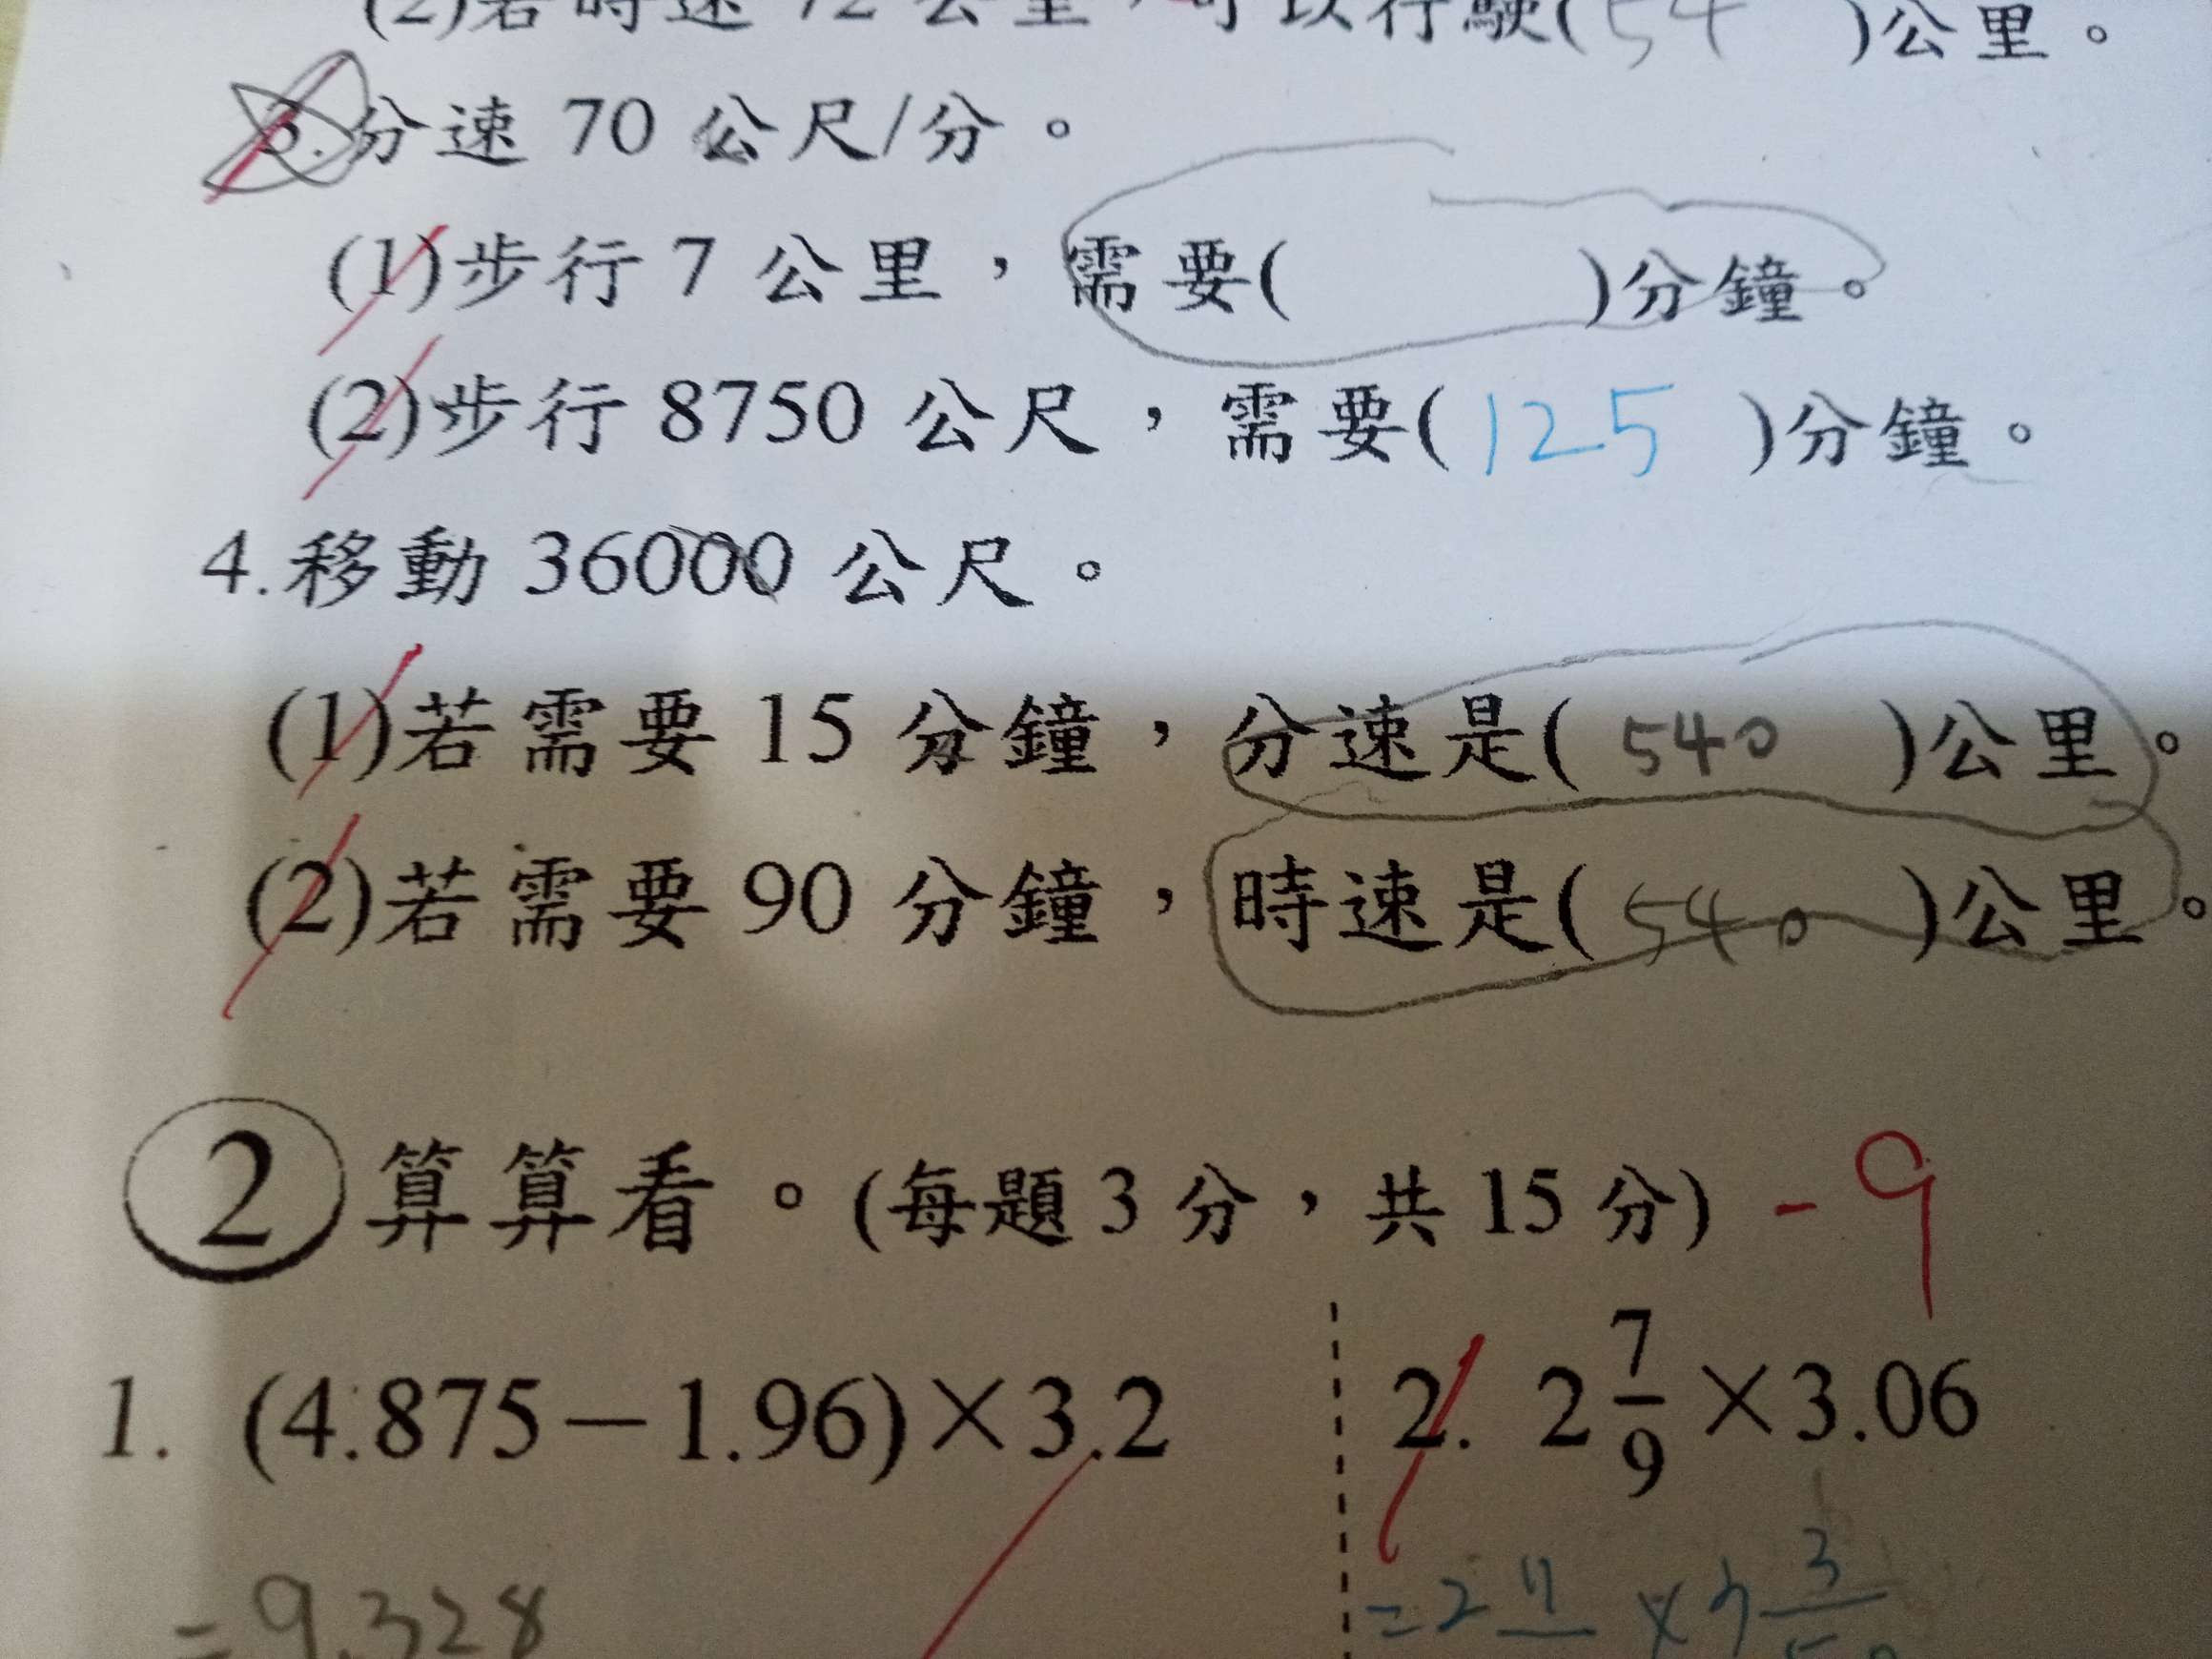 (2)若時速 72 公里，可以行駛(54)公里。
3.分速 70 公尺/分。
(1)步行 7 公里，需要( )分鐘。
(2)步行 8750 公尺，需要(125)分鐘。
4.移動 36000 公尺。
(1)若需要 15 分鐘，分速是(540)公里。
(2)若需要 90 分鐘，時速是(540)公里。
2 算算看。(每題 3 分，共 15 分) -9
1. (4.875－1.96)×3.2
2. 2 7/9 ×3.06
=9.328